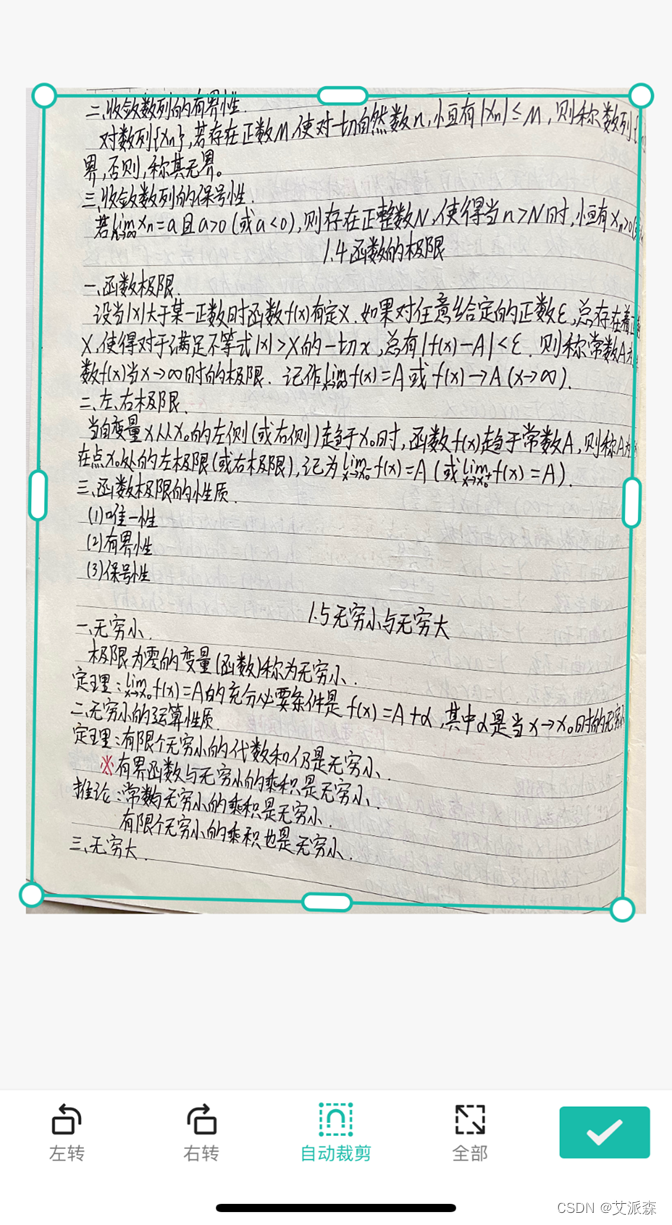 二.收敛数列的有界性.
对数列{xn},若存在正数M,使对一切自然数n,恒有|xn|≤M,则称数列
界,否则,称其无界。
三.收敛数列的保号性.
若lim xn=a且a>0(或a<0),则存在正整数N,使得当n>N时,恒有xn>0
1.4函数的极限
一.函数极限.
设当|x|大于某一正数时函数f(x)有定义.如果对任意给定的正数ε,总存在着正
X,使得对于满足不等式|x|>X的一切x,总有|f(x)-A|<ε.则称常数A为
数f(x)当x→∞时的极限.记作lim f(x)=A或f(x)→A(x→∞).
二.左、右极限.
当自变量x从x₀的左侧(或右侧)趋于x₀时,函数f(x)趋于常数A,则称A为
在点x₀处的左极限(或右极限),记为lim x→x₀⁻ f(x)=A(或lim x→x₀⁺ f(x)=A).
三.函数极限的性质.
(1)唯一性
(2)有界性
(3)保号性
1.5无穷小与无穷大
一.无穷小.
极限为零的变量(函数)称为无穷小.
定理:lim x→x₀ f(x)=A的充分必要条件是f(x)=A+α,其中α是当x→x₀时的无穷小
二.无穷小的运算性质
定理:有限个无穷小的代数和仍是无穷小.
※有界函数与无穷小的乘积是无穷小.
推论:常数与无穷小的乘积是无穷小.
有限个无穷小的乘积也是无穷小.
三.无穷大.
左转
右转
自动裁剪
全部
CSDN @艾派森